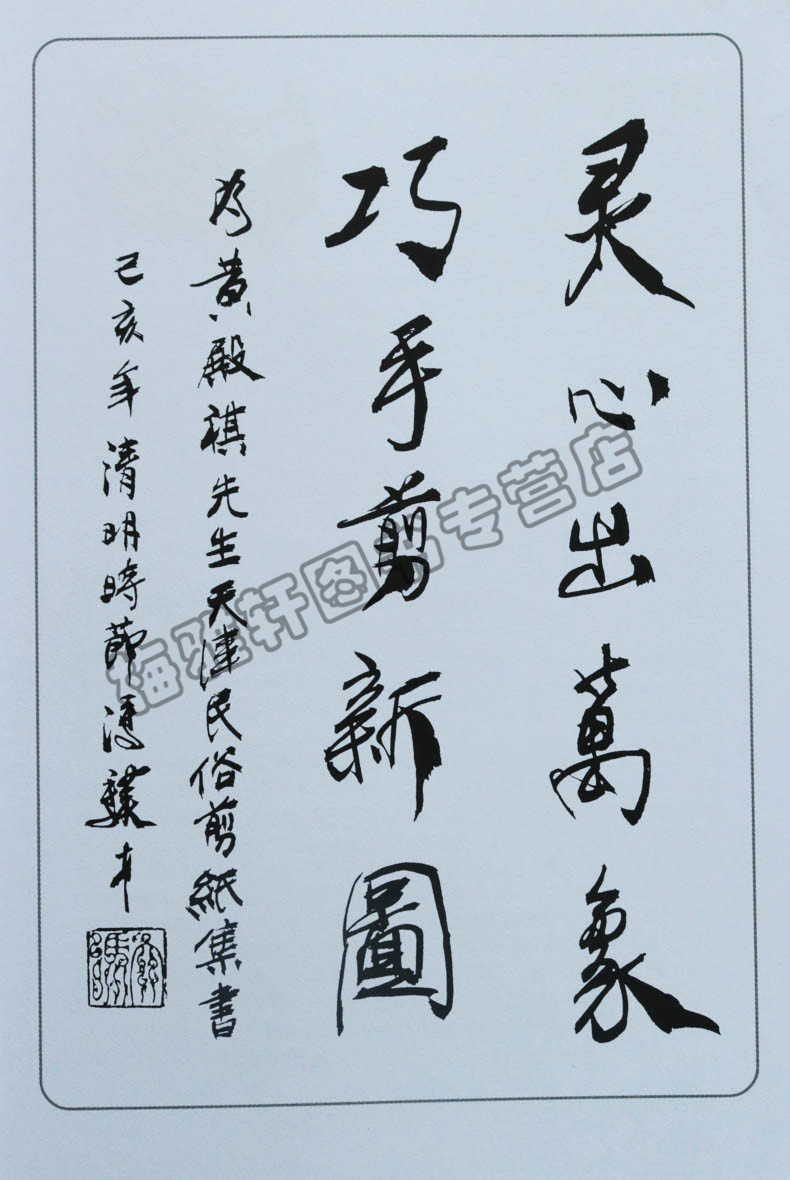 灵心出萬象
巧手剪新圖
为黄殿祺先生天津民俗剪紙集書
己亥年清明時節馮驥才
臻雅轩图书专营店